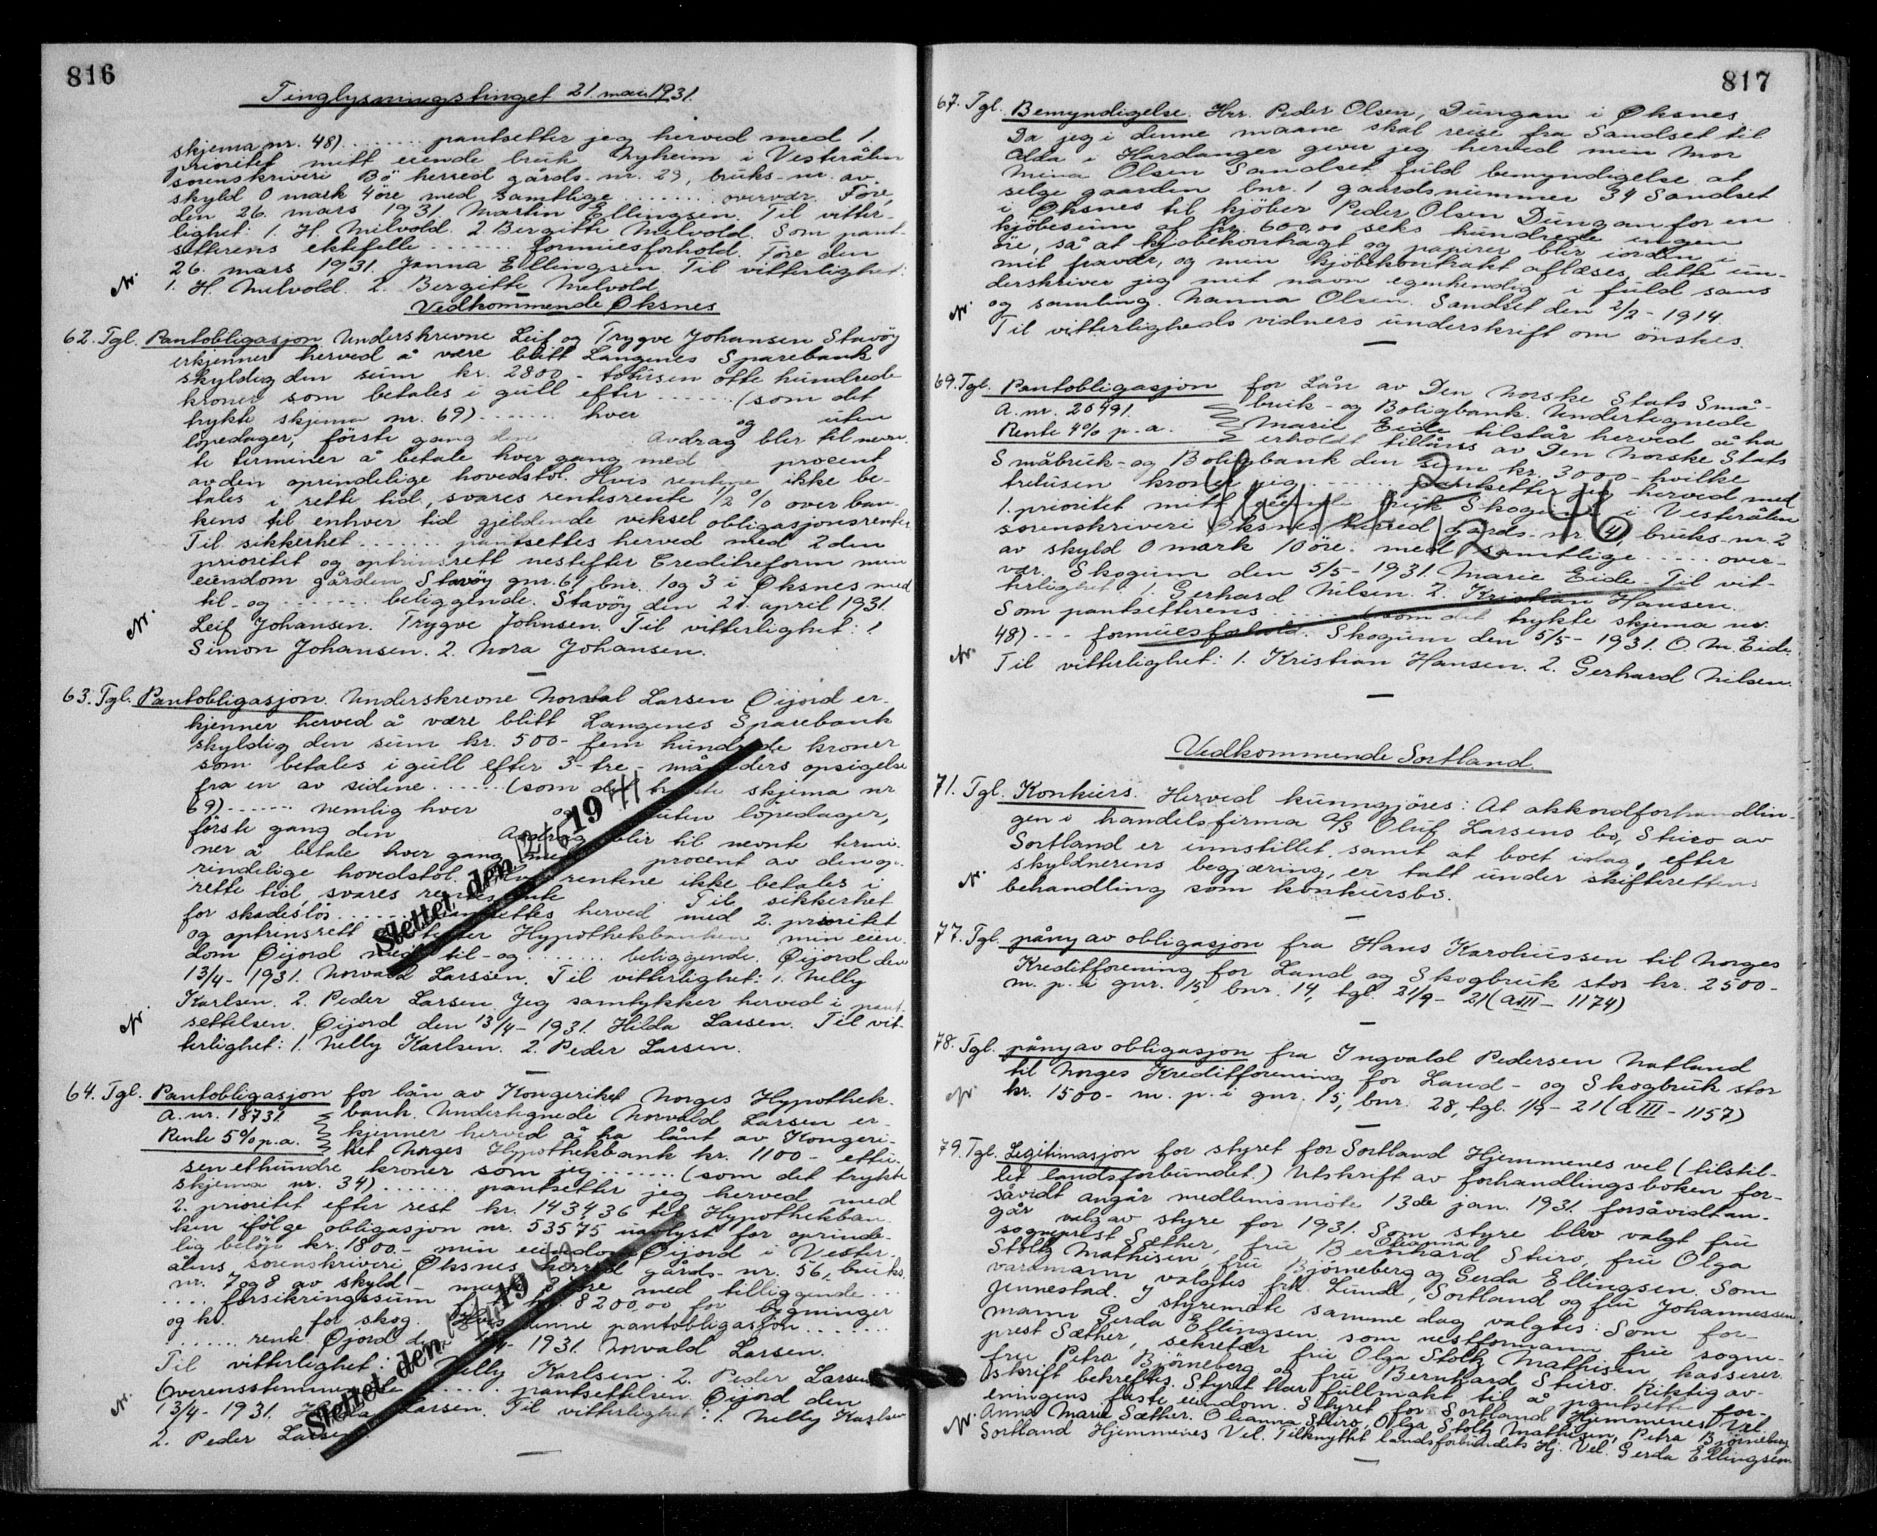 816
Tinglysningstinget 21. mai 1931.
skjema nr. 48) ........ pantsetter jeg herved med 1.
prioritet mitt eiende bruk Nyheim i Vesterålen
sorenskriveri Bö herred gårds-nr. 29, bruks-nr. av
skyld 0 mark 4 öre med samtlige ........ overvær. Före,
den 26. mars 1931. Martin Ellingsen. Til vitter-
lighet: 1. H. Milvold. 2 Bergitte Milvold. Som pant-
setterens ektefelle ........ formuesforhold. Före den
26. mars 1931. Janna Ellingsen. Til vitterlighet:
1. H. Milvold. 2. Bergitte Milvold
Vedkommende Øksnes
62. Tgl. Pantobligasjon Underskrevne Leif og Trygve Johansen Stavöy
erkjenner herved å være blitt Langenes Sparebank
skyldig den sum kr. 2800 - totusen otte hundrede
kroner som betales i gull efter ........ (som det
trykte skjema nr. 69) ........ hver og uten
löpedager, förste gang den Avdrag blir til nevn-
te terminer å betale hver gang med procent
av den oprindelige hovedstol. Hvis rentene ikke be-
tales i rette tid, svares rentesrente 1/2 % over ban-
kens til enhver tid gjeldende veksel obligasjonsrente
Til sikkerhet ........ pantsettes herved med 2den
prioritet og optrinsrett nestefter Creditreform min
eiendom gården Stavöy gnr. 61 bnr. 1 og 3 i Øksnes med
til- og ........ beliggende. Stavöy den 21. april 1931.
Leif Johansen. Trygve Johnsen. Til vitterlighet: 1.
Simon Johansen. 2. Nora Johansen.
63. Tgl. Pantobligasjon. Underskrevne Norval Larsen Öijord er-
kjenner herved å være blitt Langenes Sparebank
skyldig den sum kr. 500- fem hundrede kroner
som betales i gull efter 3- tre - måneders opsigelse
fra en av sidene ........ (som det trykte skjema nr
69) ........ nemlig hver og uten löpedager,
förste gang den Avdrag blir til nevnte termi-
ner å betale hver gang med procent av den op-
rindelige hovedstol. Hvis rentene ikke betales i
rette tid, svares rentesrente Til sikkerhet
for skadeslös ........ pantsettes herved med 2. prioritet
og optrinsrett efter Hypothekbanken min eien-
dom Öijord med til- og ........ beliggende. Öijord den
13/4- 1931. Norvald Larssen. Til vitterlighet: 1. Nelly
Karlsen. 2. Peder Larsen Jeg samtykker herved i pant-
settelsen. Öijord den 13/4- 1931. Hilda Larsen. Til vit-
terlighet: 1. Nelly Karlsen. 2. Peder Larsen.
Slettet den 12/6 1941
64. Tgl. Pantobligasjon for lån av Kongeriket Norges Hypothek-
A. nr. 18731. bank. Undertegnede Norvald Larsen er-
Rente 5% p.a. kjenner herved å ha lånt av Kongeri-
ket Norges Hypothekbank kr. 1100 - ettu-
sen ethundre kroner som jeg ........ (som det trykte
skjema nr. 34) ........ pantsetter jeg herved med
2. prioritet efter rest kr. 1434,36 til Hypothekban-
ken ifölge obligasjon nr. 53575 utglyst for oprinde-
lig belöp kr. 1800.- min eiendom Öijord i Vester-
ålens sorenskriveri Øksnes herred gårds-nr. 56, bruks-
nr. 7 og 8 av skyld mark öre med tilliggende ...
.... forsikringssum kr. 8200,00 for bygninger
og kr. for skog. Hvis denne pantobligasjon ........
........ rente. Öijord den 13/4- 1931. Norvald Larsen.
Til vitterlighet: 1. Nelly Karlsen. 2. Peder Larsen
Overensstemmende ........ pantsettelsen. Öijord den
13/4- 1931. Hilda Larsen. Til vitterlighet: 1. Nelly Karlsen
2. Peder Larsen.
Slettet den 19
817
67. Tgl. Bemyndigelse. Hrr. Peder Olsen, Dungan i Øksnes.
Da jeg i denne maane skal reise fra Sandset til
Odda i Hardanger giver jeg herved min mor
Mina Olsen Sandset fuld bemyndigelse at
selge gaarden bnr. 1 gaardsnummer 34 Sandset
i Øksnes til kjöber Peder Olsen Dungan for en
kjöbesum af kr. 600,00 seks hundrede ingen
öre, så at kjöbekontragt og papirer blir iorden i
mit fravær, og min kjöbekontrakt aflæses, dette un-
derskriver jeg mit navn egenhendig i fuld sans
og samling. Nanna Olsen. Sandset den 2/2 - 1914.
Til vitterligheds vidners underskrift om önskes.
69. Tgl. Pantobligasjon for Lån av Den Norske Stats Små-
A. nr. 26491. bruk- og Boligbank. Undertegnede
Rente 4% p. a. Marie Eide tilstår herved å ha
erholdt tillåns av Den Norske Stats
Småbruk- og Boligbank den sum kr. 3000 - hvilke
tretusen kroner jeg ........ pantsetter jeg herved med
1. prioritet mitt eiende bruk Skogum i Vesterålen
sorenskriveri Øksnes herred gårds-nr. 4, bruks-nr. 2
av skyld 0 mark 10 öre. med samtlige ........ over-
vær. Skogum den 5/5 - 1931. Marie Eide. Til vit-
terlighet: 1. Gerhard Nilsen. 2. Kristian Hansen.
Som pantsetterens ........ (som det trykte skjema nr.
48) ... formuesforhold. Skogum den 5/5 - 1931. O. M. Eide.
Til vitterlighet: 1. Kristian Hansen. 2. Gerhard Nilsen.
Vedkommende Sortland
71. Tgl. Konkurs. Herved kunngjöres: At akkordforhandlin-
gen i handelsfirma A/S Oluf Larsens bo, Stiro av
Sortland er innstillet, samt at boet idag, efter
skyldnerens begjæring, er tatt under skifterettens
behandling som konkursbo.
77. Tgl. påny av obligasjon fra Hans Karoliussen til Norges
Kreditforening for Land og Skogbruk stor kr. 2500-
m. p. i gnr. 15, bnr. 14, tgl. 21/9- 21 (a III - 1174)
78. Tgl. påny av obligasjon fra Ingvald Pedersen Natland
til Norges Kreditforening for Land- og Skogbruk stor
kr. 1500- m. p. i gnr. 15, bnr. 28, tgl. 1/9- 21 (a III - 1157)
79. Tgl. Legitimasjon for styret for Sortland Hjemmenes vel (tilstil-
let landsforbundet.) Utskrift av forhandlingsboken for-
såvidt angår medlemsmöte 13de jan. 1931. forsåvidt an-
går valg av styre for 1931. Som styre blev valgt frue
sogneprest Sæther, frue Oleanna Bernhard Stiro, frue Olga
Stoltz Mathisen, frue Björneberg og Gerda Ellingsen. Som
varamann valgtes frk. Lunde, Sortland og frue Johannessen
Jennestad. I styremöte samme dag valgtes: Som for-
mann Gerda Ellingsen. som nestformann frue sogne-
prest Sæther, sekretær frue Olga Stoltz Mathisen, kasserer
frue Petra Björneberg og frue Bernhard Stiro. Riktig av-
skrift bekreftes. Styret har fullmakt til å pantsette for-
eningens faste eiendom. Styret for Sortland Hjemmenes Vel.
Anna Marie Sæther. Oleanna Stiro, Olga Stoltz Mathisen, Petra Björneberg
Sortland Hjemmenes Vel. Tilknyttet landsforbundets Hj. Vel. Gerda Ellingsen.